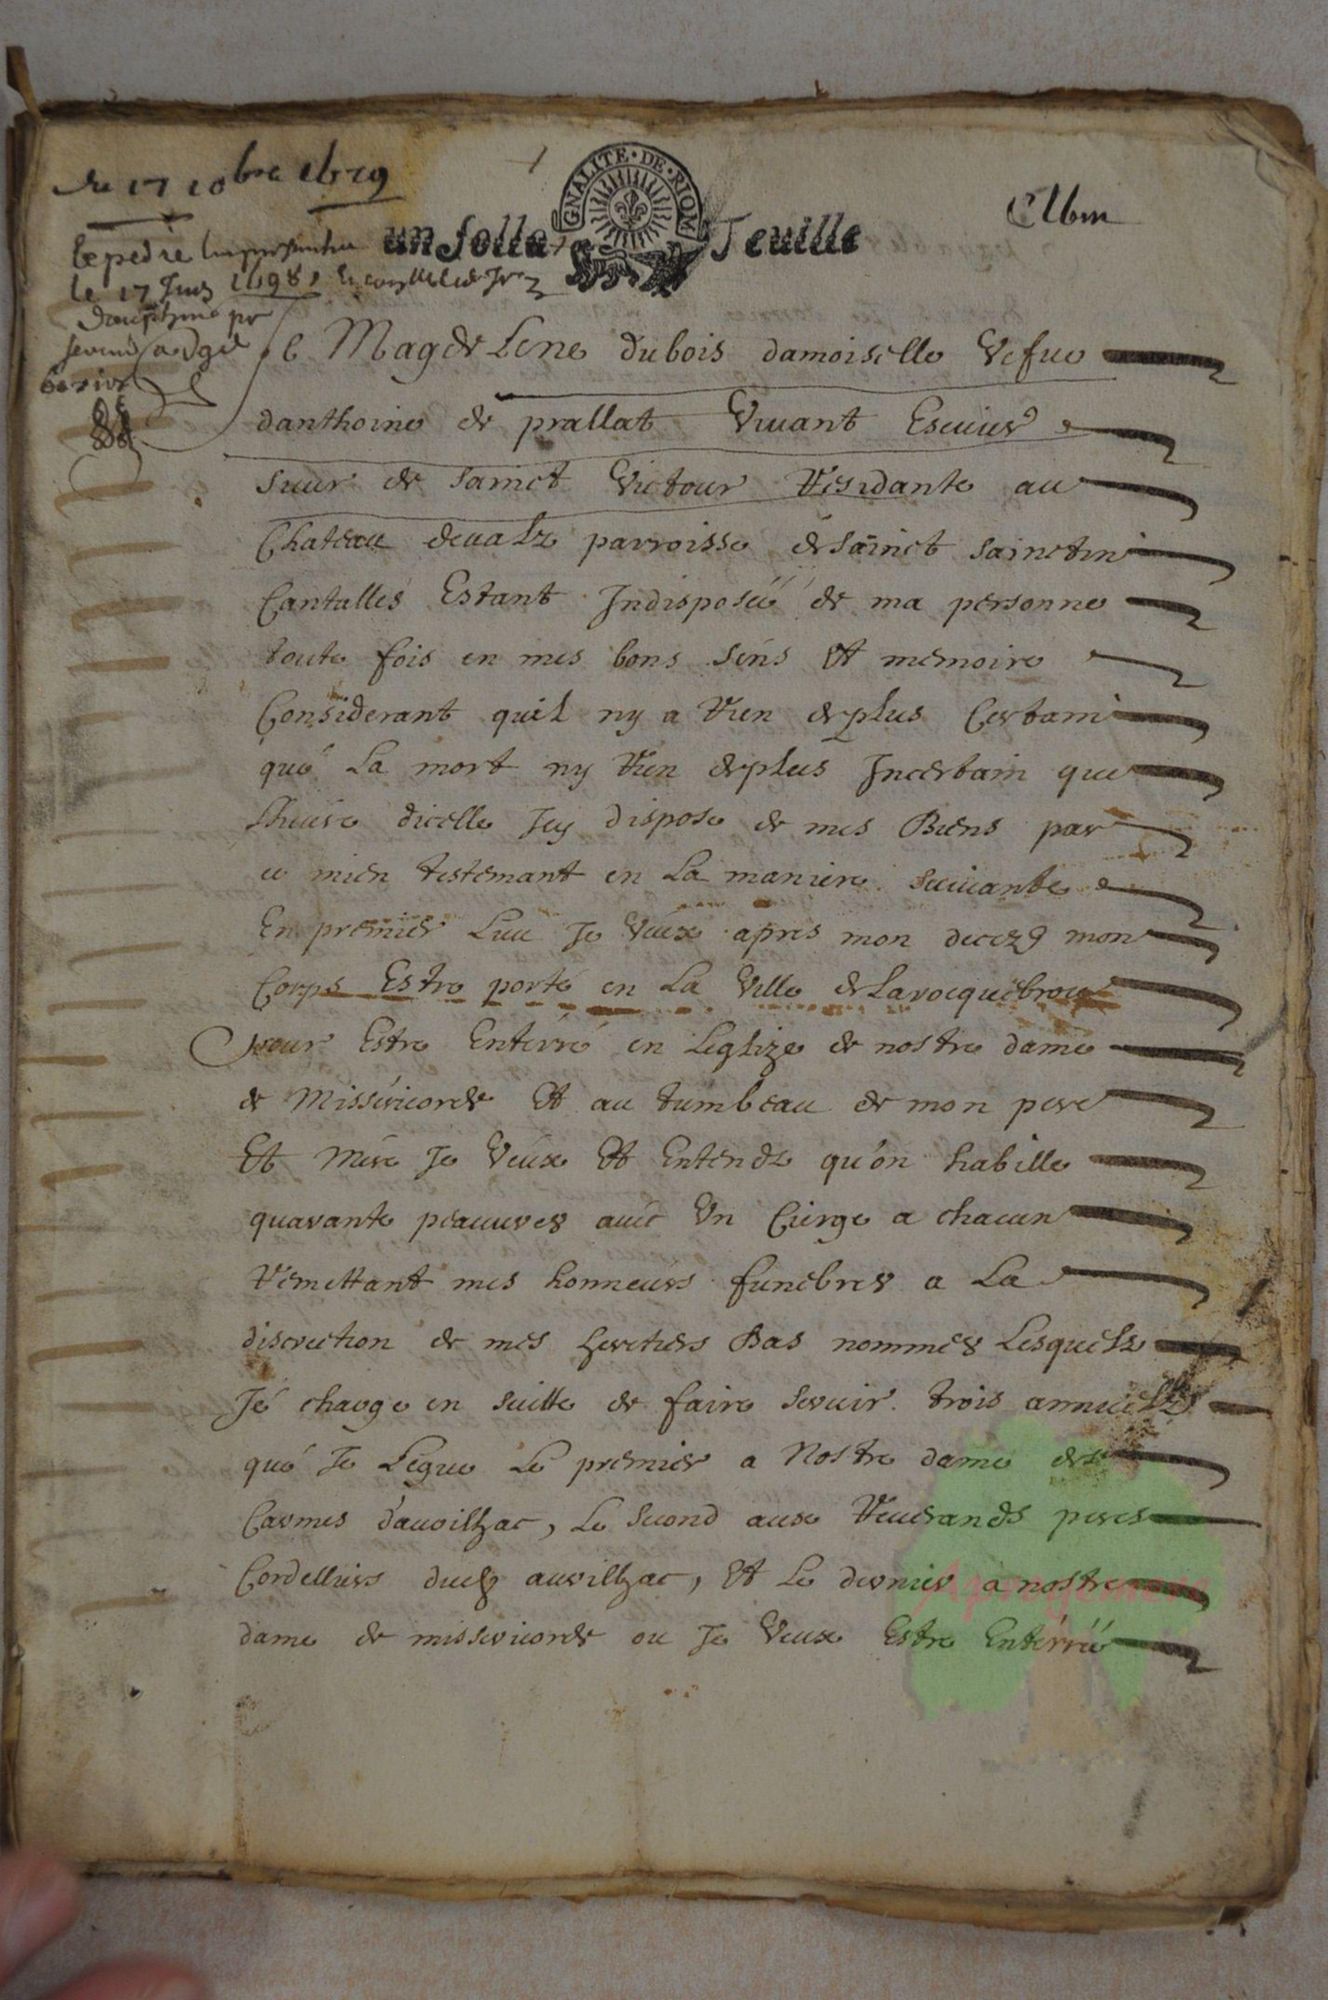 du 17 10bre 1679
GNALITE · DE · RIOM
un solla feuille
le 17 Juin 1698
Je Magdelene dubois damoiselle Vefue
danthoine de prallat Vivant Escuier
sieur de sainct Victour Residante au
Chateau devalz parroisse de sainct sainctin
Cantalles Estant Indisposée de ma personne
toute fois en mes bons sens Et memoire
Considerant quil ny a Rien de plus Certain
que La mort ny Rien de plus Incertain que
Lheure dicelle Jey dispose de mes Biens par
ce mien testemant en La maniere suivante
En premier Lieu Je Veux apres mon decezs mon
Corps Estre porté en La Ville de Larocquebrou
pour Estre Enterré en Leglize de nostre dame
de Missericorde Et au tumbeau de mon pere
Et Mere Je Veux Et Entends qu'on habille
quarante peauvres avec Un Cierge a chacun
Remettant mes honneurs funebres a La
discretion de mes heretiers Bas nommes Lesquelz
Je charge en suitte de faire servir trois annuelz
que Je Legue Le premier a Nostre dame des
Carmes d'aurilhac, Le second aux Reverands peres
Cordelliers dud aurilhac, Et Le dernier a nostre
dame de missericorde ou Je Veux Estre Enterrée
Aprogemere